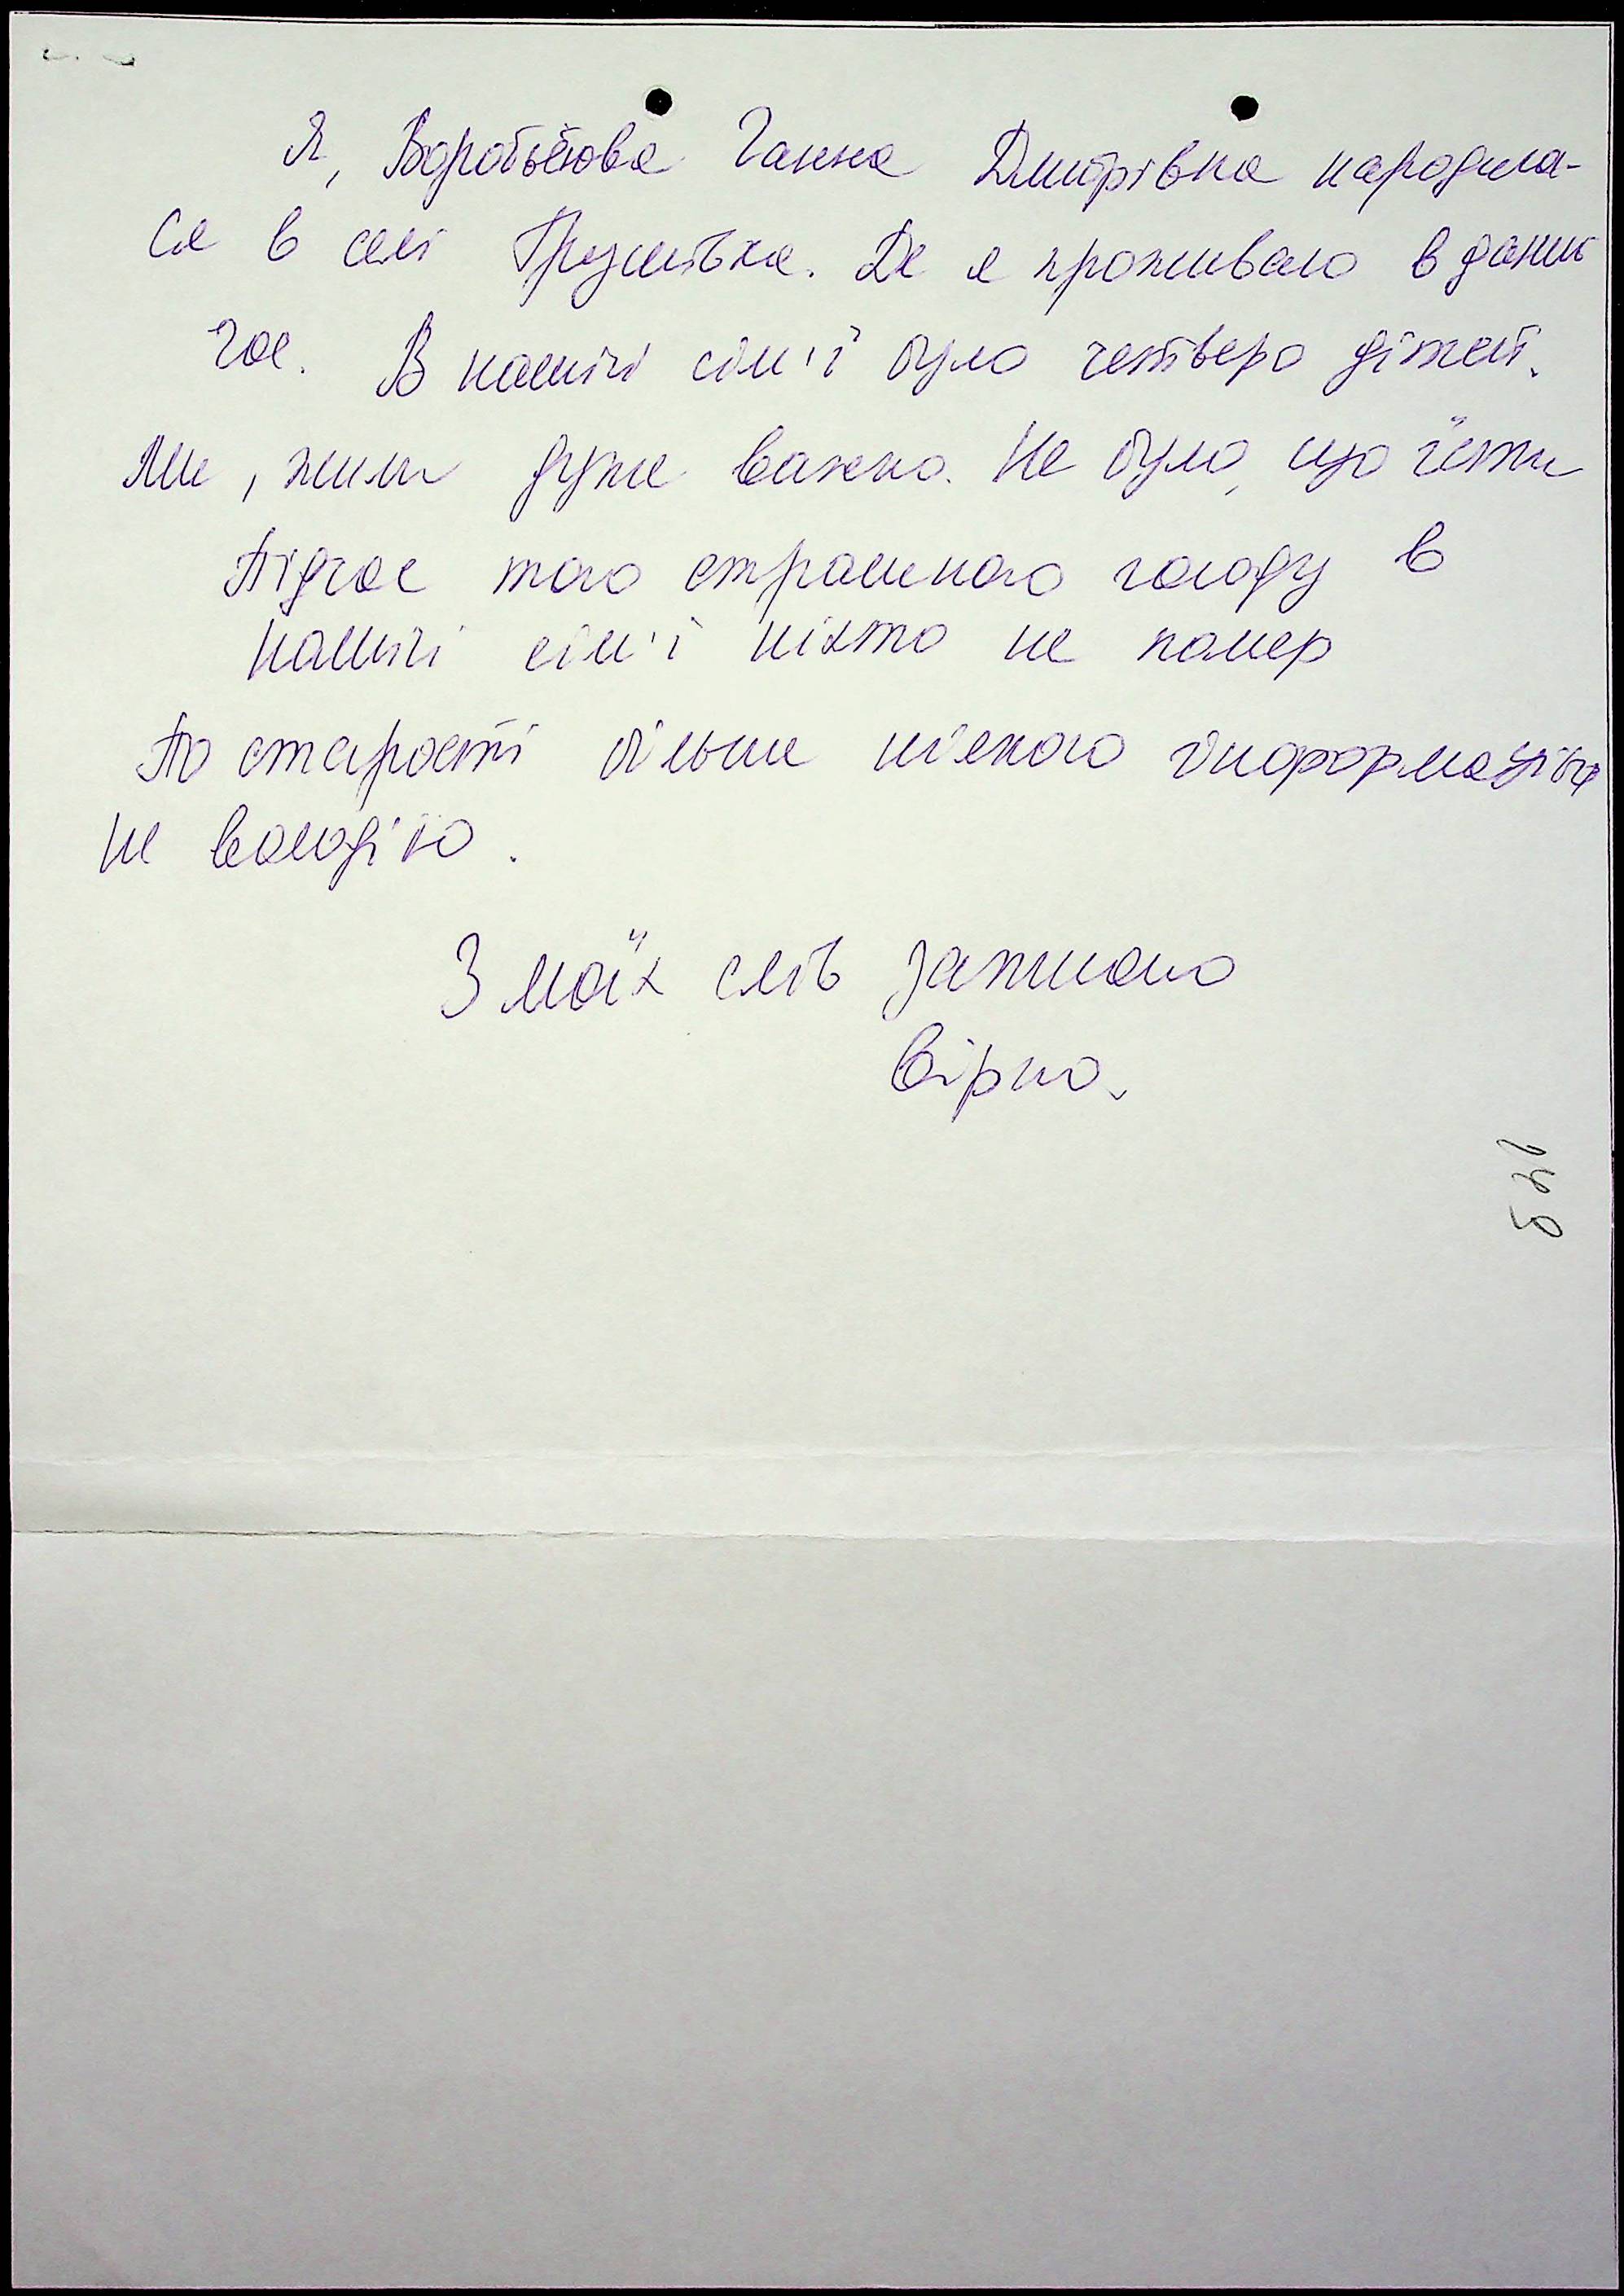 Я, Воробьйова Ганна Дмитрівна народила-
ся в селі Грушівка. Де я проживаю в даний
час. В нашій сім'ї було четверо дітей.
Ми, жили дуже важко. Не було, що їсти
Підчас того страшного голоду в
нашій сім'ї ніхто не помер
По старості більше ніякого інформацією
не володію.
З моїх слів записано
вірно.